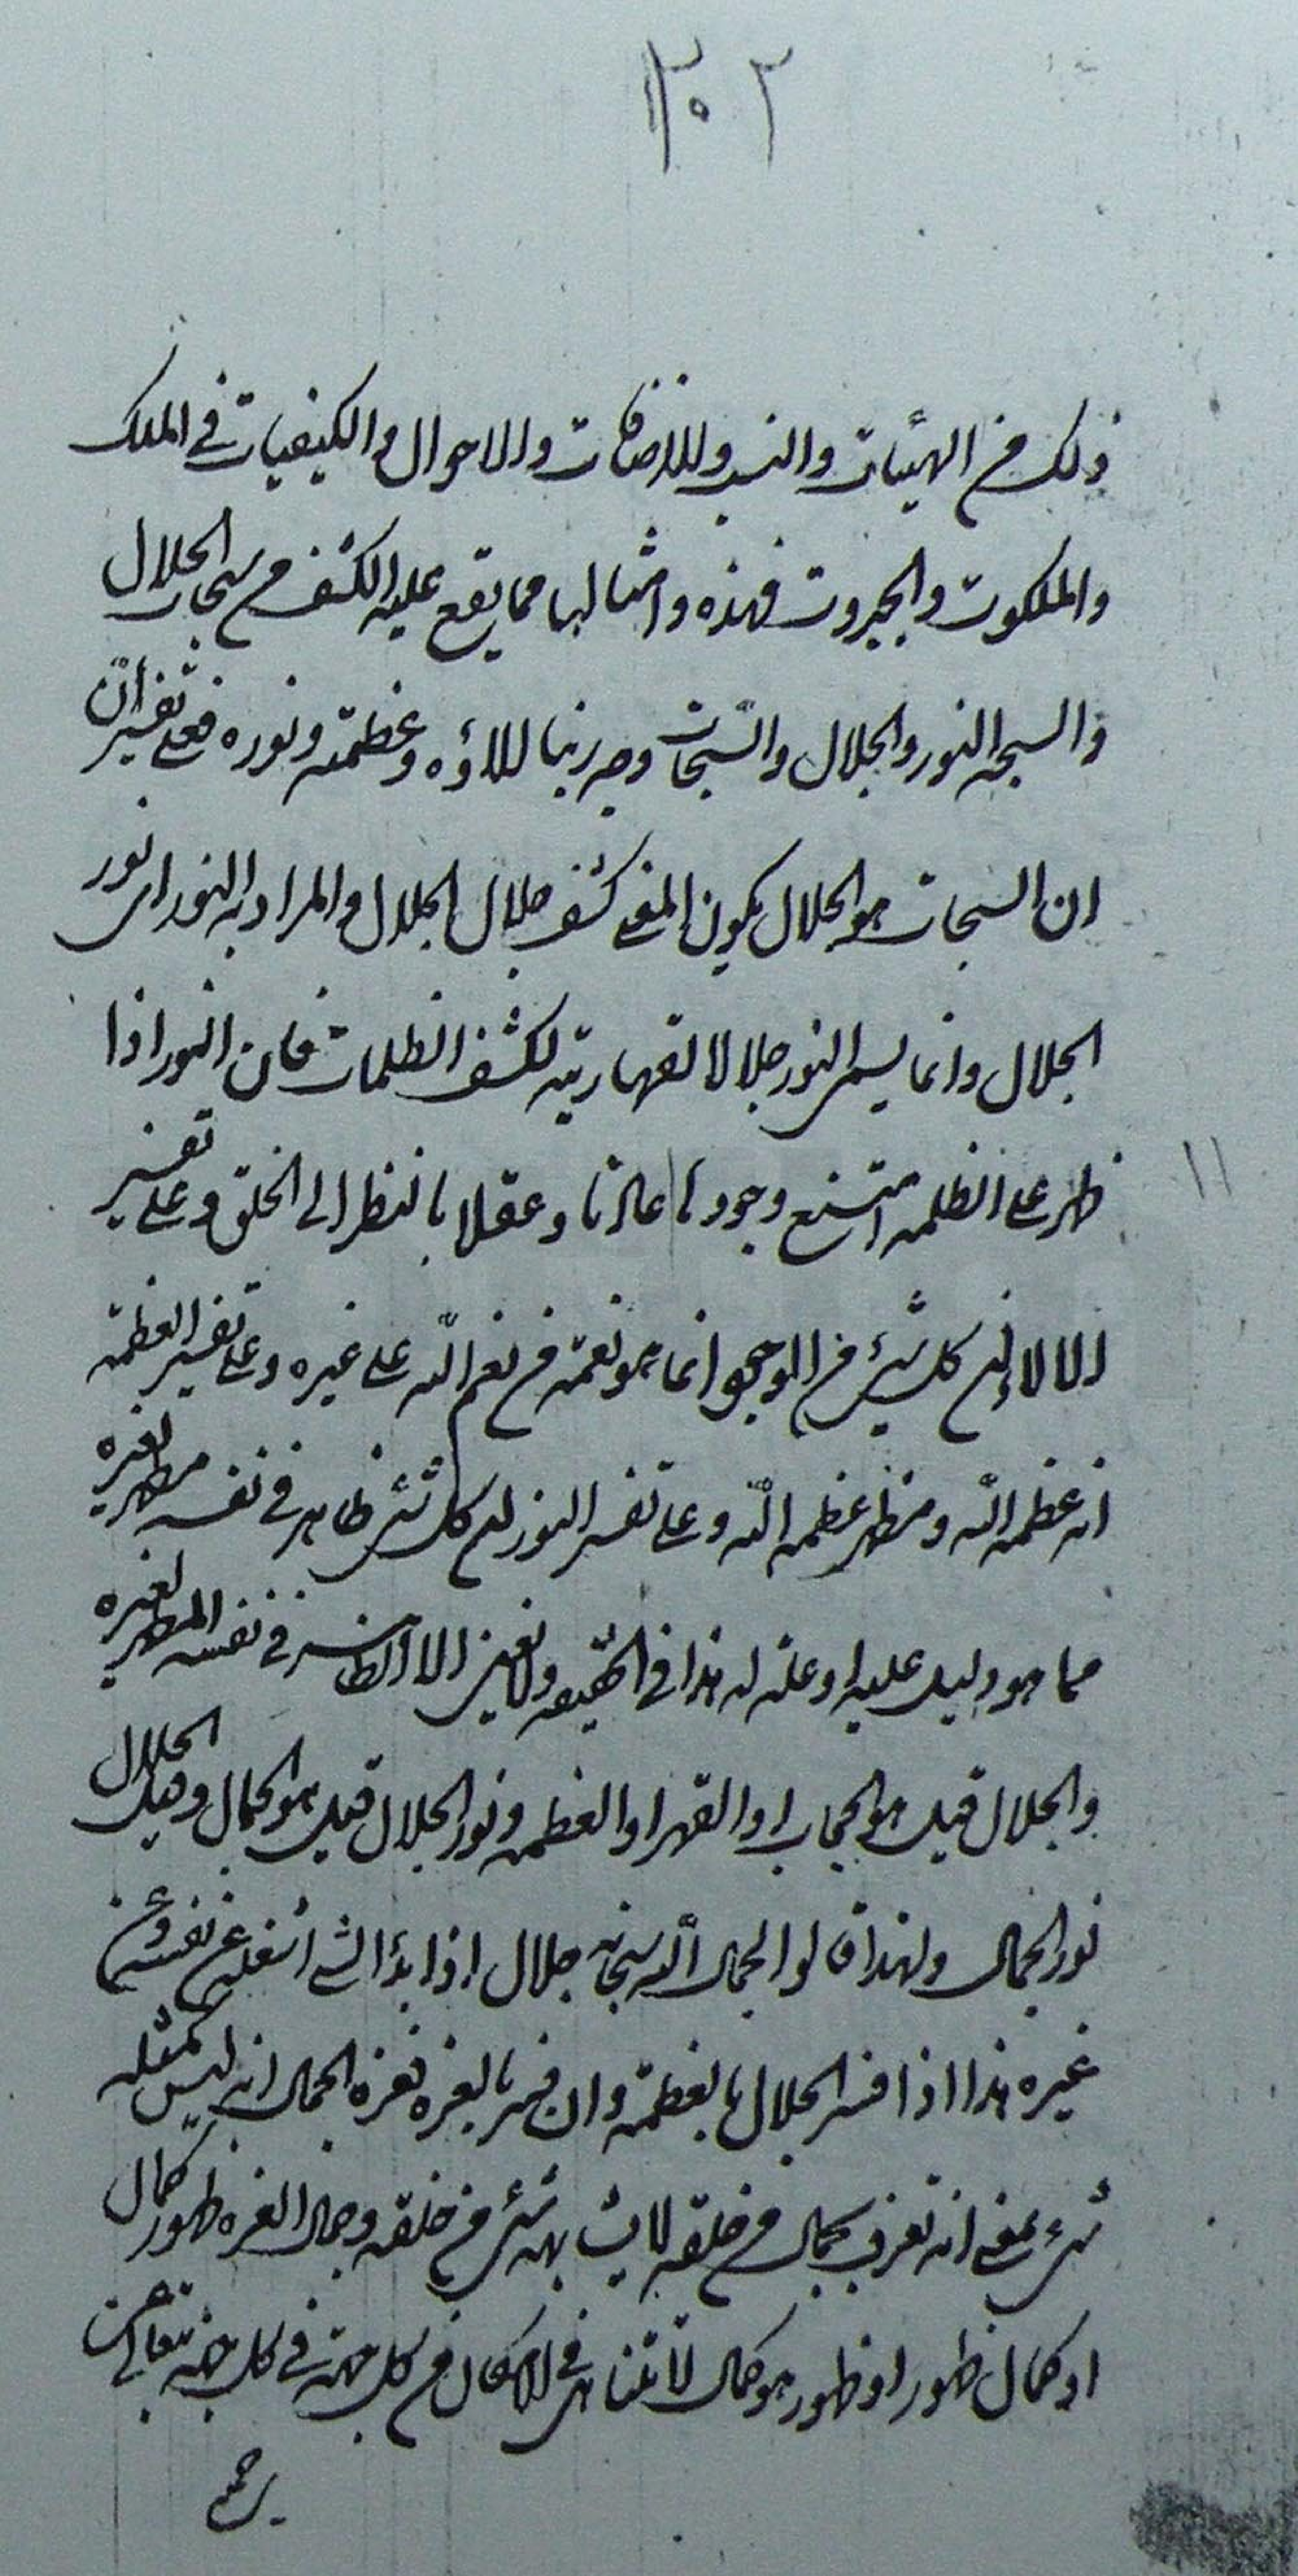 ٣٠٢
ذلك من الهيئات والنسب والاضافات والاحوال والكيفيات في الملك
والملكوت والجبروت فهذه وامثالها مما يقع عليه الكشف من سبحات الجلال
والسبحه النور والجلال والسّبحات وجه ربنا للاؤه وعظمته ونوره فعلى تفسير انّ
ان السبحات هو الجلال يكون المعنى كشف جلال الجلال والمراد به النور اى نور
الجلال وانما يسمى النور جلالا لقهاريته لكشف الظلمات فان النور اذا
ظهر على الظلمه امتنع وجودها عادتا وعقلا بالنظر الى الخلق وعلى تفسير
الالاء لان كل شئ من الوجود انما هو نعمة من نعم اللّه على غيره وعلى تفسير العظمة
انه عظمه اللّه ومظهر عظمه اللّه وعلى تفسير النور لان كل شئ ظاهر في نفسه مظهر لغيره
مما هو دليل عليه او علة له هذا في الحقيقه ولا نعنى الا الظاهر في نفسه المظهر لغيره
والجلال قيل هو الحجاب او القهر او العظمه ونور الجلال قيل هو الجمال وقيل الجلال
نور الجمال ولهذا قالوا لجمال اللّه سبحانه جلال اذا بدا الشئ اشغله عن نفسه وعن
غيره هذا اذا فسر الجلال بالعظمة وان فسر بالعزه فعزه الجمال انه ليس كمثله
شئ بمعنى انه تعرف بجمال من خلقه لا يشابهه شئ من خلقه وجمال العزه ظهور كمال
او كمال ظهور او ظهور هو كمال لا تتناهى في الامكان من كل جهة في كل جهة